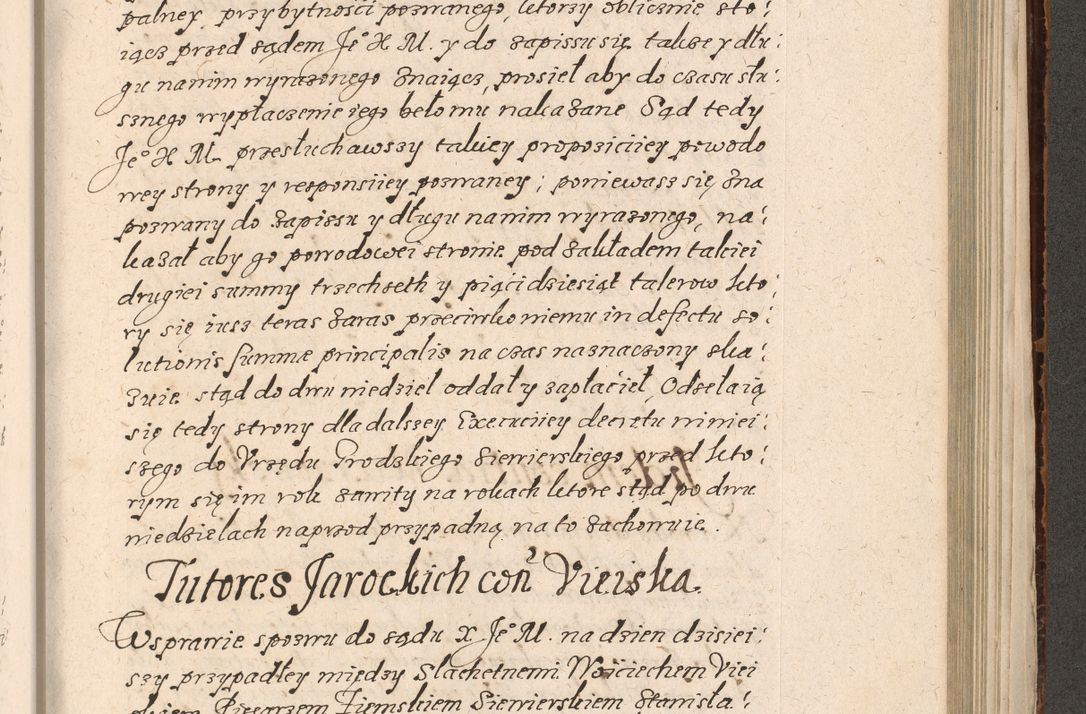 palney przybytności pozwanego, ktorzy oblicznie sto:
iącz przed sądem Jeº X M. y do zapissu się także y dłu:
gu nanim wyrazonego znaiącz, prosieł aby do czasu słu:
sznego wypłaczenie iego beło mu nakazane Sąd tedy
Jeº X M. przesłuchawszy takiey propozicijey powodo
wey strony y responsijey pozwaney; poniewasz się zna
pozwany do zapissu y długu nanim wyrazonego, na:
kazał aby go powodowei stronie pod zakładem takiei
drugiei summy trzechseth y piąci dziesiąt talerow kto:
ry się iusz teras zaras przeciwko niemu in defectu so:
lutionis summæ principalis na czas naznaczony ska:
zuie stąd do dwu niedziel oddał y zapłacieł, Odsełaią
się tedy strony dla dalszey Execucijey decretu niniei:
szego do Vrzędu Grodzkiego Siewierskiego przed kto:
rym się im rok zawity na rokach ktore stąd po dwu
niedzielach naprzod przypadną na to zachowuie.
Tutores Jarockich con Vieiska.
W sprawie spozwu do sądu X Jeº M. na dzien dzisiei:
szy przypadłey między Slachetnemi Woiciechem Viei
skiem Pisarzem Ziemskiem Siewierskiem Stanisła: